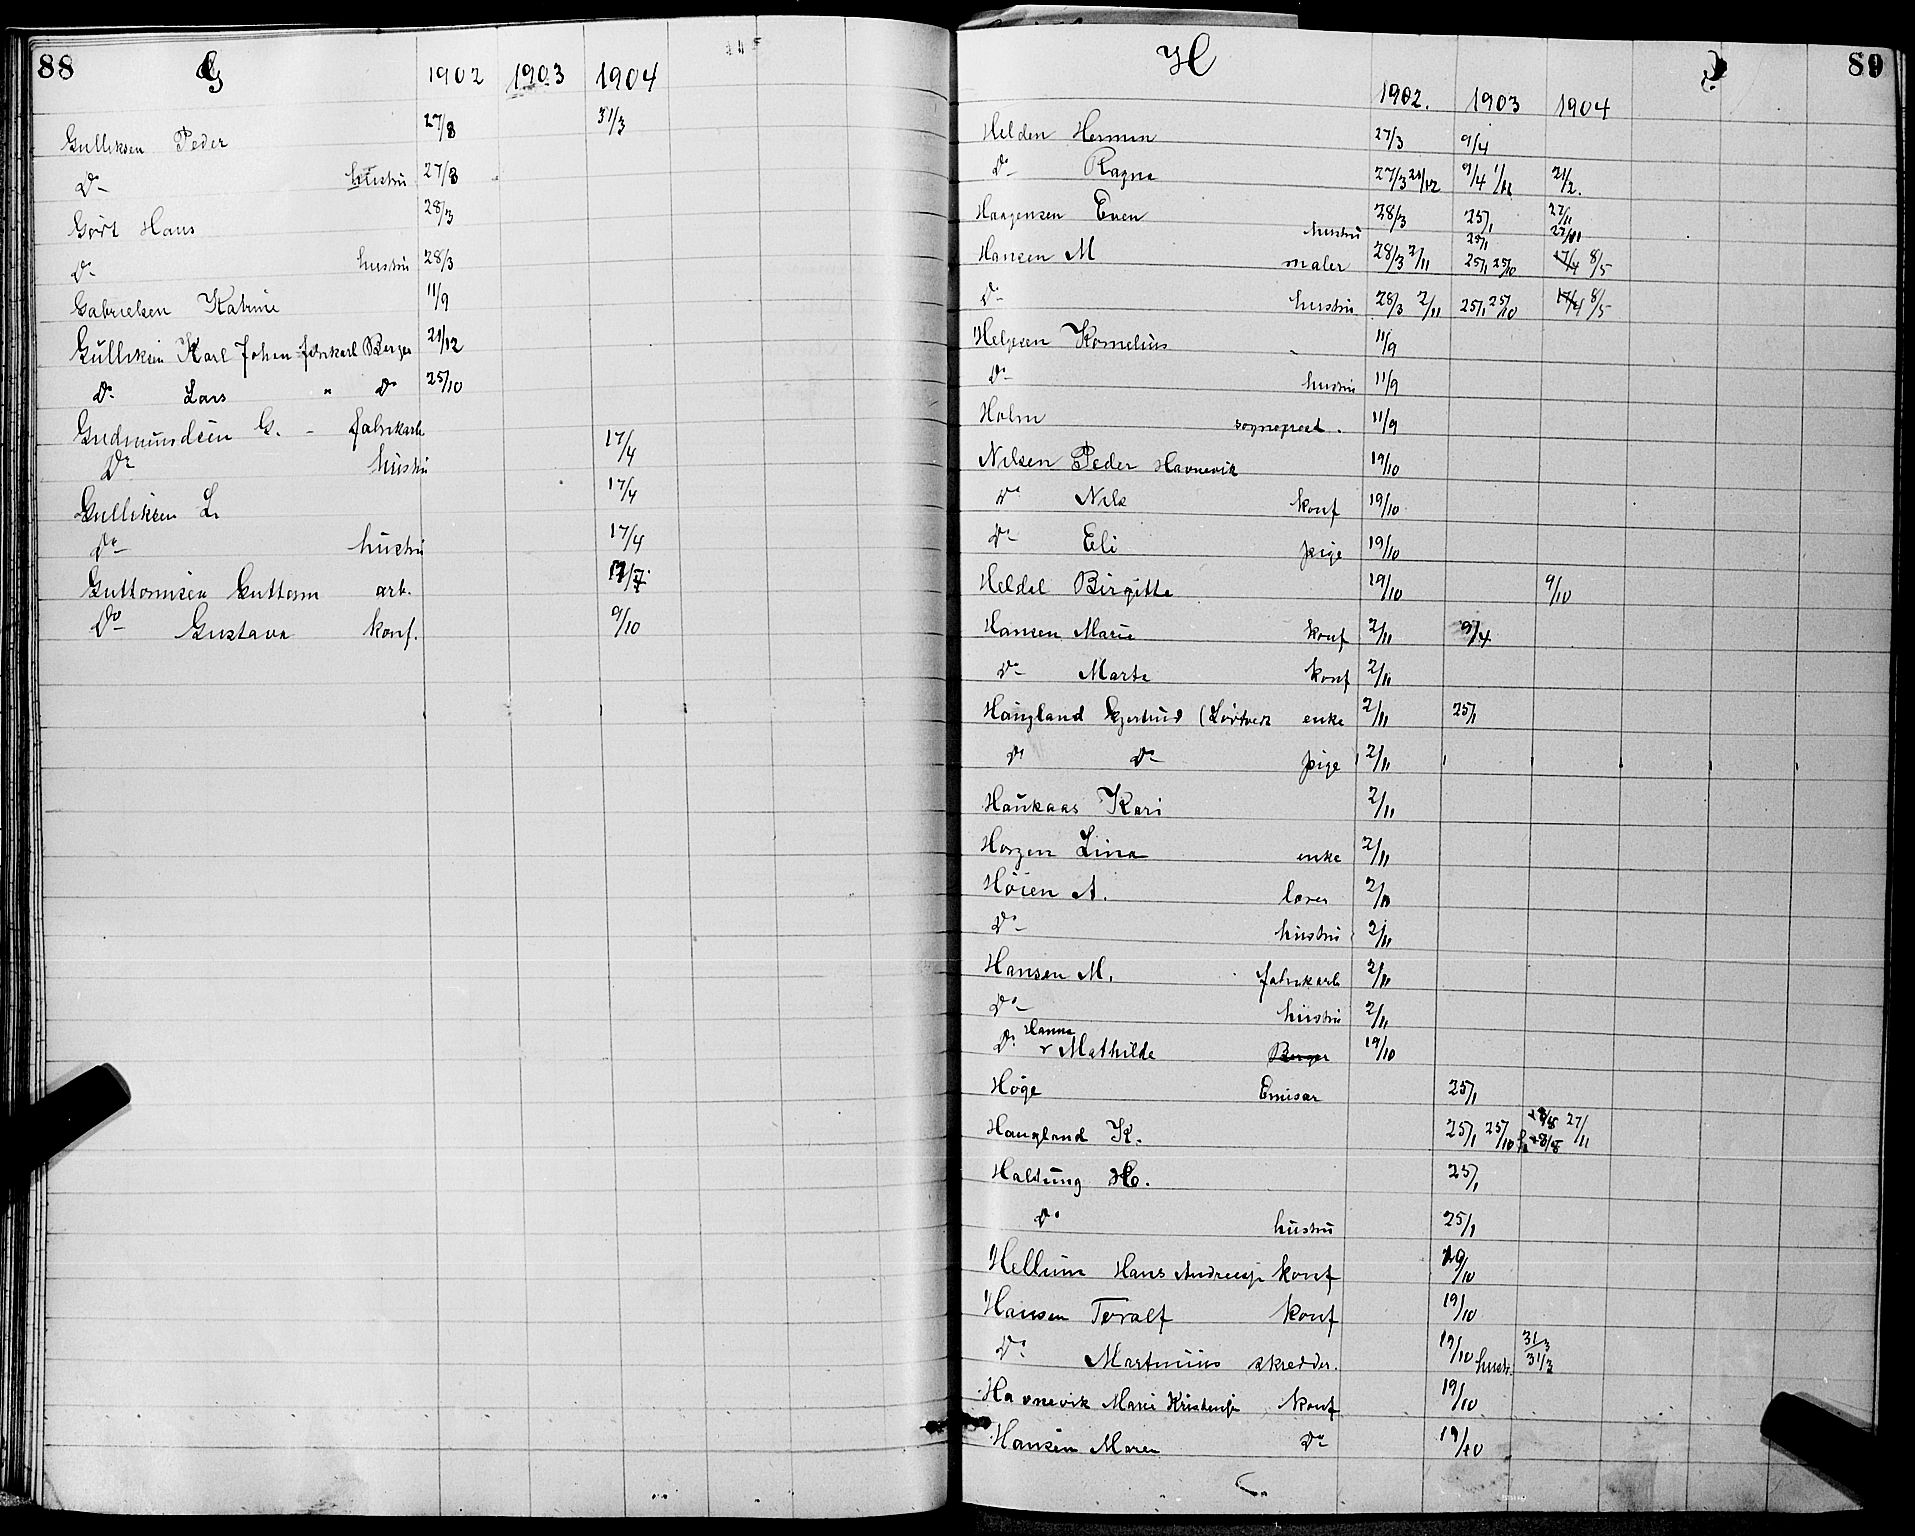 88 G 1902 1903 1904
Gulliksen Peder 27/8 31/3
Do hustru 27/8
Gort Hans 28/3
Do hustru 28/3
Gabrielsen Katrine 11/9
Gulliksen Karl Johan fabrikarb Berger 21/12
Do Lars " Do 25/10
Gudmundsen G. - fabrikarb 17/4
Do hustru
Gulliksen L. 17/4
Do hustru 17/4
Guttormsen Guttorm arb.
Do Gustava konf. 9/10
H 89
1902. 1903 1904
Helden Herman 27/3 9/4
Do Ragna 27/3 21/12 9/4 1/11 21/2.
Haagensen Even 28/3 25/1 27/11
hustru 25/1 27/11
Hansen M maler 28/3 2/11 25/1 25/10 17/4 8/5
Do hustru 28/3 2/11 25/1 25/10 17/4 8/5
Helgesen Kornelius 11/9
Do hustru 11/9
Holm sogneprest. 11/9
Nilsen Peder Havnevik 19/10
Do Nils konf 19/10
Do Eli pige 19/10
Heldal Birgitte 19/10 9/10
Hansen Marie konf 2/11 9/4
Do Marta konf 2/11
Haugland Gjertrud (Lørtveit enke 2/11 25/1
Do Do pige 2/11
Haukaas Kari 2/11
Horgen Lina enke 2/11
Höien A. lærer 2/11
Do hustru 2/11
Hansen M. fabrikarb 2/11
Do hustru 2/11
Do Hanna Mathilde Berger 19/10
Höge Emisær 25/1
Haugland K. 25/1 25/10 28/8 27/11
28/8
Haldung H. 25/1
Do hustru 25/1
Hellum Hans Andreas konf 19/10
Hansen Toralf konf 19/10
Do Martinius skredder. 19/10 hustr. 31/3 31/3
Havnevik Marie Kristensen konf 19/10
Hansen Maren Do 19/10